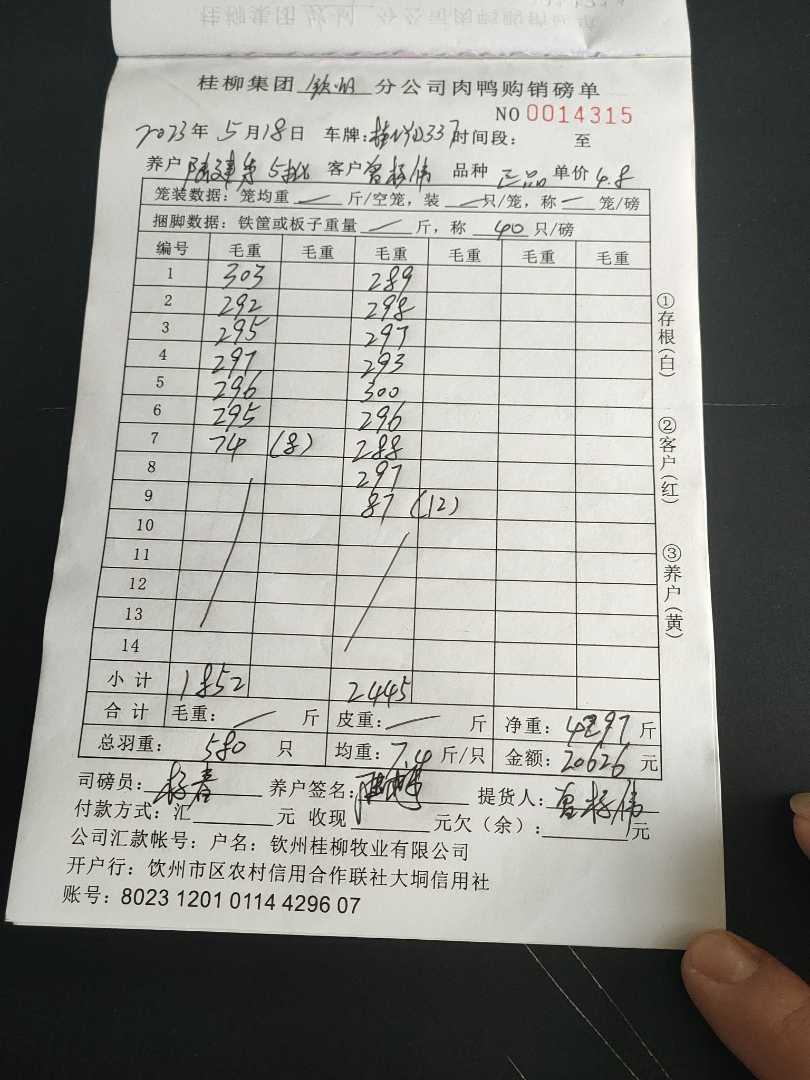 桂柳集团 钦州 分公司肉鸭购销磅单
NO 0014315
2023年 5月18日 车牌: 337 时间段: 至
养户 5批 客户 曾 伟 品种 正品 单价 4.8
笼装数据: 笼均重 斤/空笼, 装 只/笼, 称 笼/磅
捆脚数据: 铁筐或板子重量 斤, 称 40 只/磅
编号 毛重 毛重 毛重 毛重 毛重 毛重
1 303 289
2 292 298
3 295 297
4 297 293
5 296 300
6 295 296
7 74 (8) 288
8 297
9 87 (12)
10
11
12
13
14
小计 1852 2445
合计 毛重: 斤 皮重: 斤 净重: 4297 斤
总羽重: 580 只 均重: 7.4 斤/只 金额: 20626 元
司磅员: 杨春 养户签名: 提货人: 曾 伟
付款方式: 汇 元 收现 元欠(余): 元
公司汇款帐号: 户名: 钦州桂柳牧业有限公司
开户行: 饮州市区农村信用合作联社大垌信用社
账号: 8023 1201 0114 4296 07
①存根(白) ②客户(红) ③养户(黄)